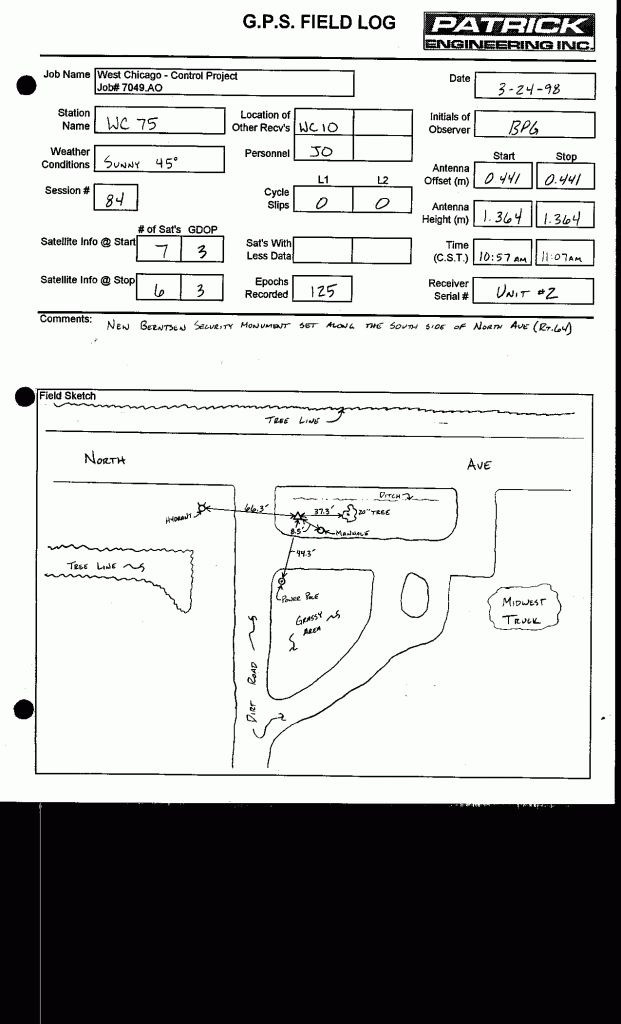 G.P.S. FIELD LOG
PATRICK
ENGINEERING INC.
Job Name West Chicago - Control Project
Job# 7049.AO
Date 3-24-98
Station Name WC 75
Location of Other Recv's WC10
Initials of Observer BPG
Weather Conditions SUNNY 45°
Personnel JO
Start Stop
Antenna Offset (m) 0.441 0.441
Session # 84
L1 L2
Cycle Slips 0 0
Antenna Height (m) 1.364 1.364
# of Sat's GDOP
Satellite Info @ Start 7 3
Sat's With Less Data
Time (C.S.T.) 10:57 AM 11:07AM
Satellite Info @ Stop 6 3
Epochs Recorded 125
Receiver Serial # UNIT #2
Comments: NEW BERNTSEN SECURITY MONUMENT SET ALONG THE SOUTH SIDE OF NORTH AVE (RT.64)
Field Sketch
TREE LINE
NORTH AVE
DITCH
66.3'
37.3'
20" TREE
HYDRANT
8.5'
MANHOLE
44.3'
TREE LINE
POWER POLE
GRASSY AREA
MIDWEST TRUCK
DIRT ROAD